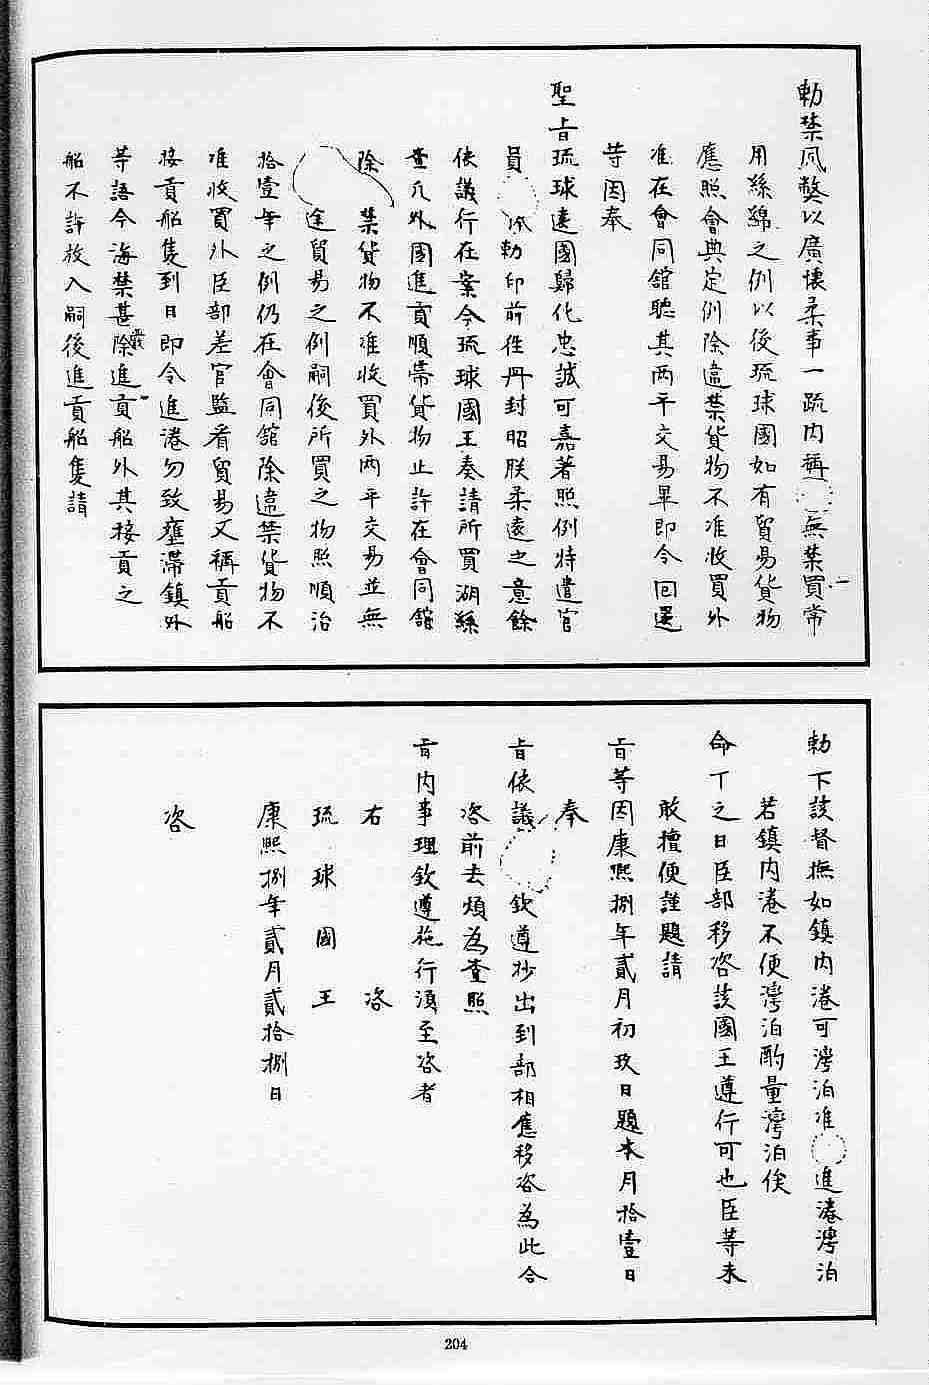 勅禁夙獘以廣懷柔事一疏内稱無禁買常
用絲綿之例以後琉球國如有貿易貨物
應照會典定例除違禁貨物不准收買外
准在會同舘聽其两平交易畢即令回還
等因奉
聖旨琉球遠國歸化忠誠可嘉著照例特遣官
員勅印前徃丹封昭朕柔遠之意餘
依議行在案今琉球國王奏請所買湖絲
查凢外國進貢順帶貨物止許在會同舘
除禁貨物不准收買外两平交易並無
逹貿易之例嗣後所買之物照順治
拾壹年之例仍在會同舘除違禁貨物不
准收買外臣部差官監看貿易又稱貢船
接貢船隻到日即令進港勿致壅滯鎮外
等語今海禁甚嚴除進貢船外其接貢之
船不許放入嗣後進貢船隻請
勅下該督撫如鎮内港可灣泊准進港灣泊
若鎮内港不便灣泊酌量灣泊俟
命下之日臣部移咨該國王遵行可也臣等未
敢擅便謹題請
旨等因康熙捌年貳月初玖日題本月拾壹日
奉
旨依議欽遵抄出到部相應移咨為此合
咨前去煩為查照
旨内事理欽遵施行湏至咨者
右咨
琉球國王
康熙捌年貳月貳拾捌日
咨
204